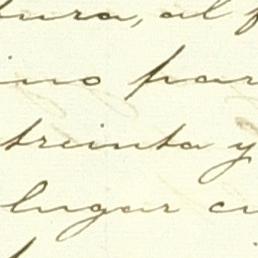 tura, al f
ino par
treinta y
lugar cu